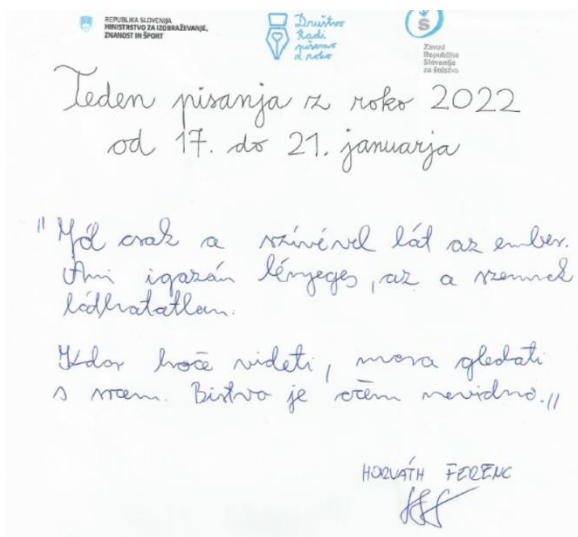 REPUBLIKA SLOVENIJA
MINISTRSTVO ZA IZOBRAŽEVANJE,
ZNANOST IN ŠPORT
Društvo
Radi
pišemo
z roko
Š
Zavod
Republike
Slovenije
za šolstvo
Teden pisanja z roko 2022
od 17. do 21. januarja
"Jól csak a szívével lát az ember.
Ami igazán lényeges, az a szemnek
láthatatlan.
Kdor hoče videti, mora gledati
s srcem. Bistvo je očem nevidno."
HORVÁTH FERENC